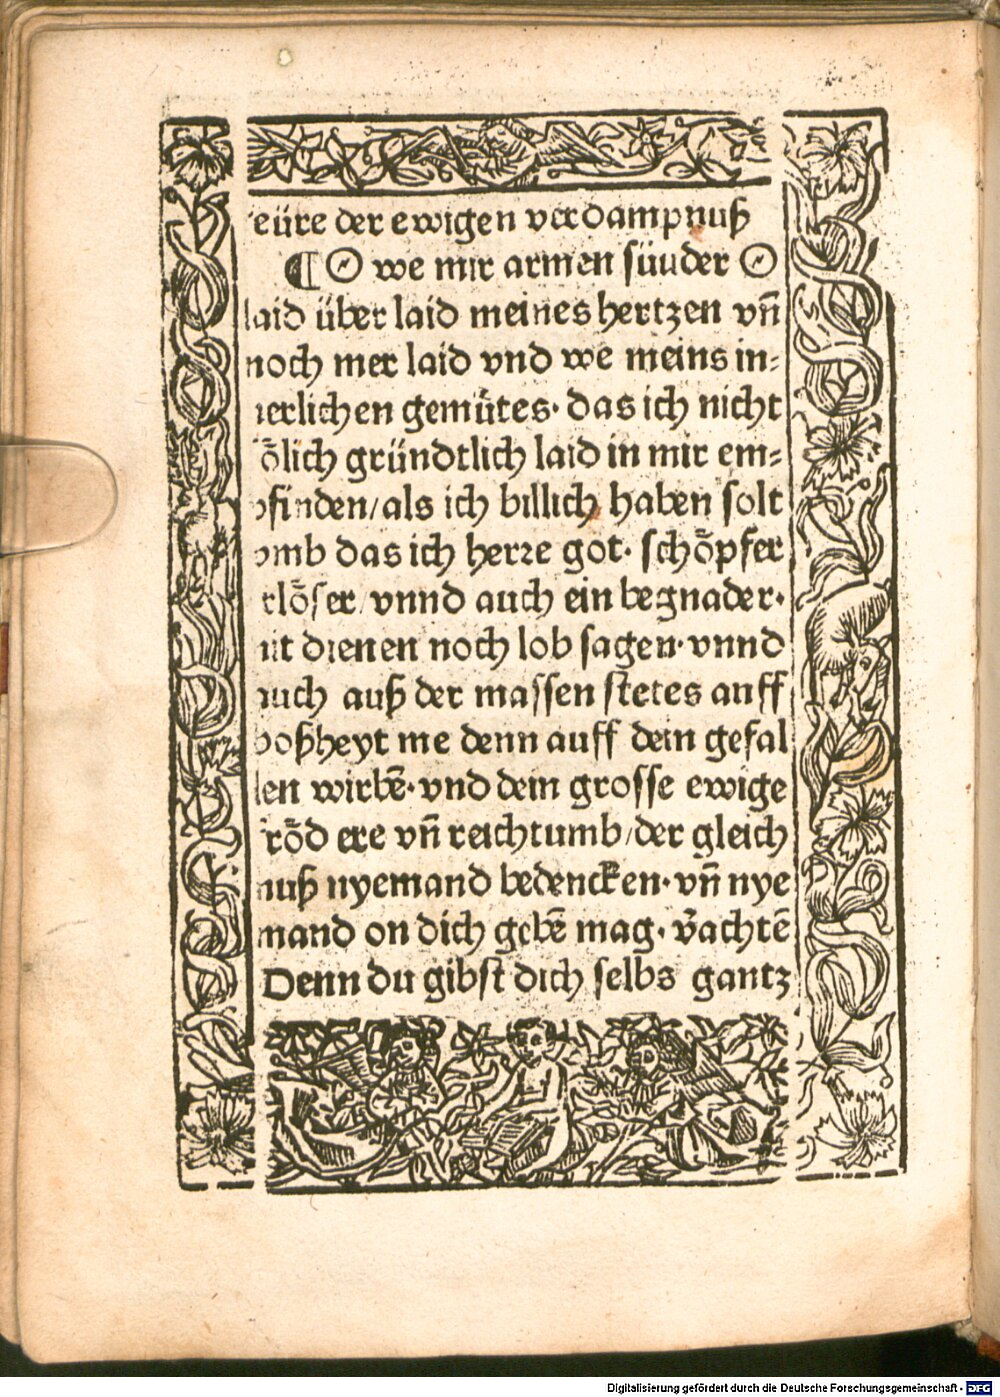 eüre der ewigen verdampnuß
¶ O we mir armen süuder O
laid über laid meines hertzen vn̄
noch mer laid vnd we meins in⸗
ierlichen gemuͤtes· das ich nicht
oͤlich gründtlich laid in mir em⸗
pfinden/als ich billich haben solt
vmb das ich herre got· schoͤpfer
rloͤser/vnnd auch ein begnader·
nit dienen noch lob sagen·vnnd
auch auß der massen stetes auff
boßheyt me denn auff dein gefal
len wirbē·vnd dein grosse ewige
roͤd ere vn̄ reichtumb/der gleich
nuß nyemand bedencken·vn̄ nye
mand on dich gebē mag· v̄achtē
Denn du gibst dich selbs gantz
Digitalisierung gefördert durch die Deutsche Forschungsgemeinschaft - DFG